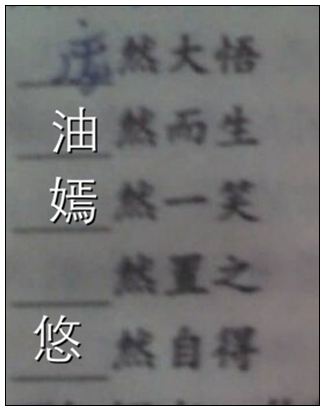 然大悟
油然而生
嫣然一笑
然置之
悠然自得